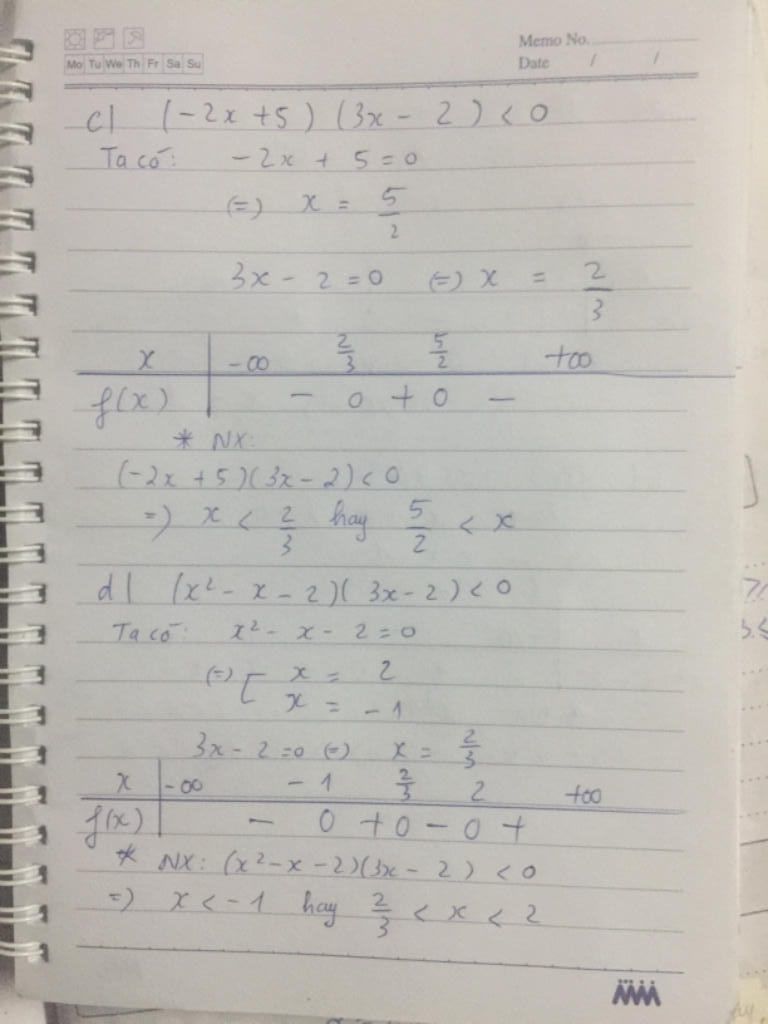 Memo No.
Mo Tu We Th Fr Sa Su
Date / /
c| (-2x + 5) (3x - 2) < 0
Ta có: -2x + 5 = 0
(=) x = 5/2
3x - 2 = 0 (=) x = 2/3
x | -∞ 2/3 5/2 +∞
f(x) | - 0 + 0 -
* NX:
(-2x + 5)(3x - 2) < 0
=) x < 2/3 hay 5/2 < x
d| (x² - x - 2)(3x - 2) < 0
Ta có: x² - x - 2 = 0
(=) [ x = 2
x = -1
3x - 2 = 0 (=) x = 2/3
x | -∞ -1 2/3 2 +∞
f(x) | - 0 + 0 - 0 +
* NX: (x² - x - 2)(3x - 2) < 0
=) x < -1 hay 2/3 < x < 2